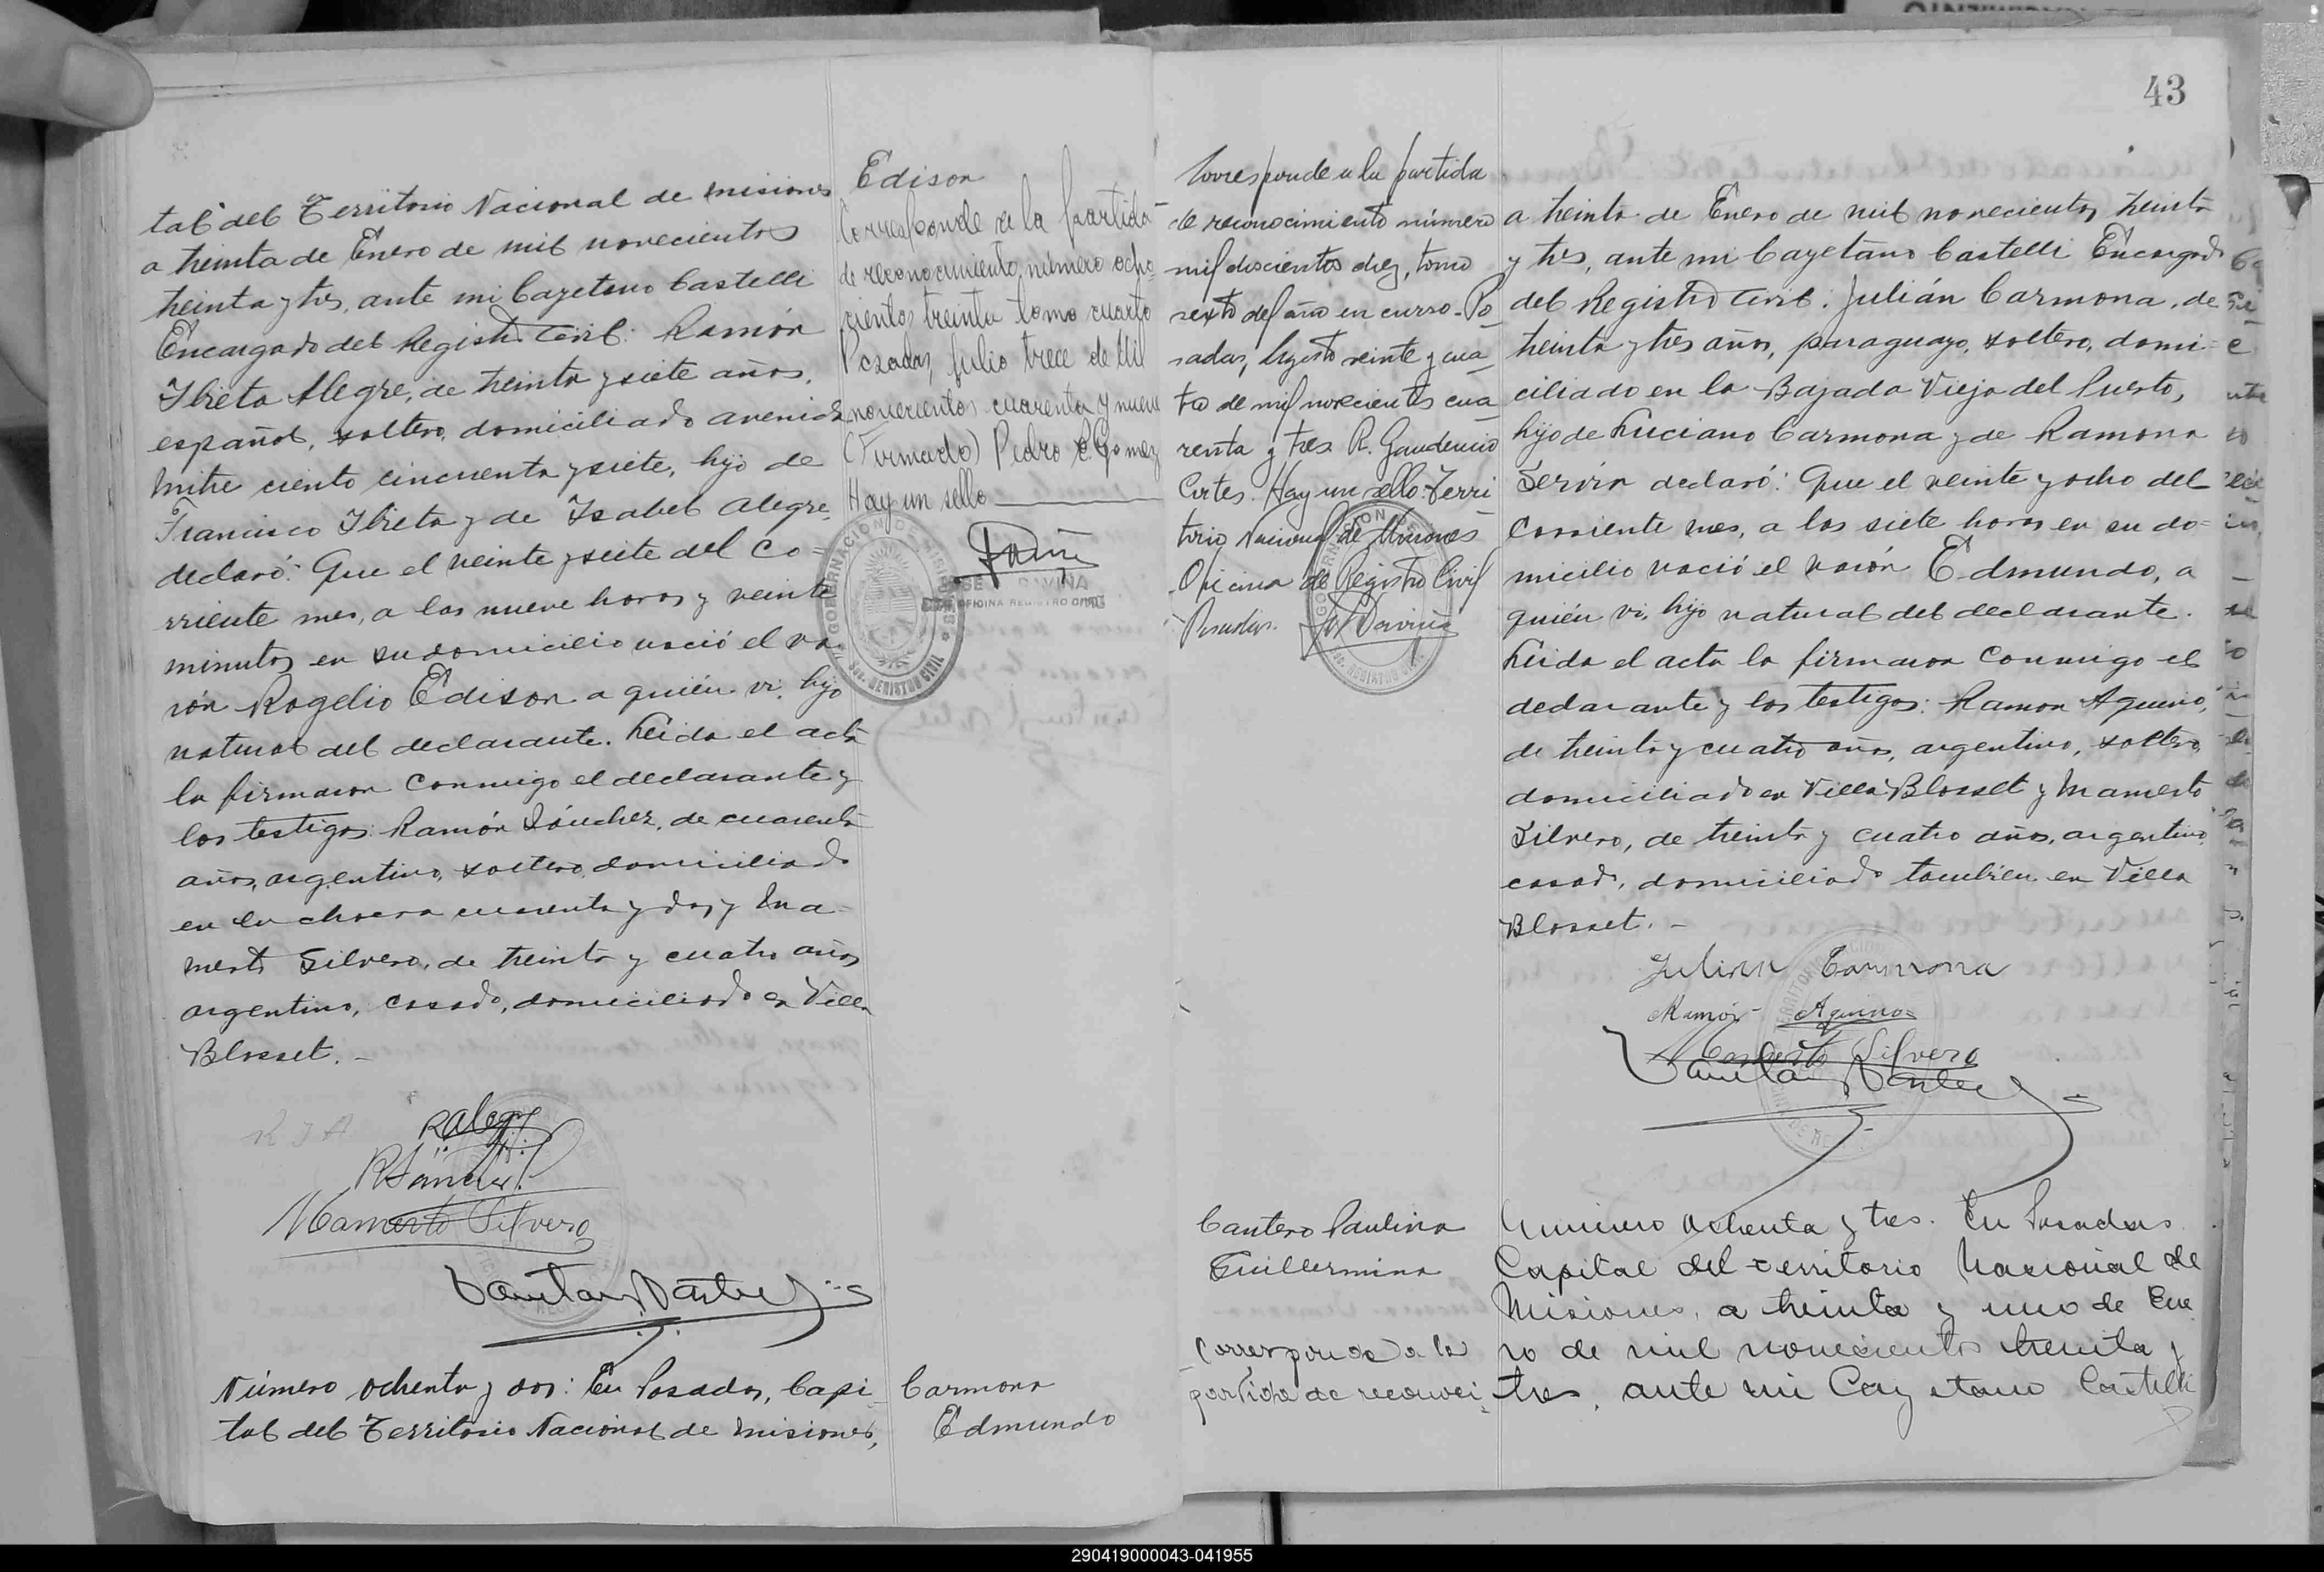 43
tal del Territorio Nacional de Misiones
a treinta de Enero de mil novecientos
treinta y tres, ante mi Cayetano Castelli
Encargado del Registro Civil: Ramón
Irieta Alegre, de treinta y siete años,
español, soltero, domiciliado avenida
Mitre ciento cincuenta y siete, hijo de
Francisco Irieta y de Isabel Alegre,
declaró: Que el veinte y siete del co=
rriente mes, a las nueve horas y veinte
minutos en su domicilio nació el va-
rón Rogelio Edison a quién vi, hijo
natural del declarante. Leida el acta
la firmaron conmigo el declarante y
los testigos: Ramón Sánchez, de cuarenta
años, argentino, soltero, domiciliado
en la chacra cuarenta y dos, y Ma-
merto Silvero, de treinta y cuatro años
argentino, casado, domiciliado en Villa
Blosset. -
R I A
RAlegre
RSánchez
Mamerto Silvero
Número ochenta y dos: En Posadas, Capi-
tal del Territorio Nacional de Misiones,
Edison
Corresponde a la partida
de reconocimiento, número ocho-
cientos treinta tomo cuarto
Posadas, Julio trece de mil
novecientos cuarenta y nueve
(Firmado) Pedro C. Gomez
Hay un sello
GOBERNACION DE MISIONES
REGISTRO CIVIL
OFICINA REGISTRO CIVIL
Carmona
Edmundo
Corresponde a la partida
de reconocimiento número
mil doscientos diez, tomo
sexto del año en curso - Po-
sadas, Agosto veinte y cua-
tro de mil novecientos cua-
renta y tres. R. Gaudencio
Cortes. Hay un sello: Terri-
torio Nacional de Misiones
Oficina de Registro Civil
Posadas.
a treinta de Enero de mil novecientos treinta
y tres, ante mi Cayetano Castelli Encargado
del Registro Civil: Julián Carmona, de
treinta y tres años, paraguayo, soltero, domi=
ciliado en la Bajada Vieja del Puerto,
hijo de Luciano Carmona y de Ramona
Servín declaró: Que el veinte y ocho del
corriente mes, a las siete horas en su do=
micilio nació el varón Edmundo, a
quién vi, hijo natural del declarante.
Leida el acta la firmaron conmigo el
declarante y los testigos: Ramon Aquino,
de treinta y cuatro años, argentino, soltero,
domiciliado en Villa Blosset y Mamerto
Silvero, de treinta y cuatro años, argentino,
casado, domiciliado tambien en Villa
Blosset. -
Julian Carmona
Ramón Aquino
Mamerto Silvero
Cantero Paulina
Guillermina
Corresponde a la
partida de reconoci-
Número ochenta y tres. En Posadas
Capital del Territorio Nacional de
Misiones, a treinta y uno de Ene
ro de mil novecientos treinta y
tres, ante mi Cayetano Castelli
290419000043-041955